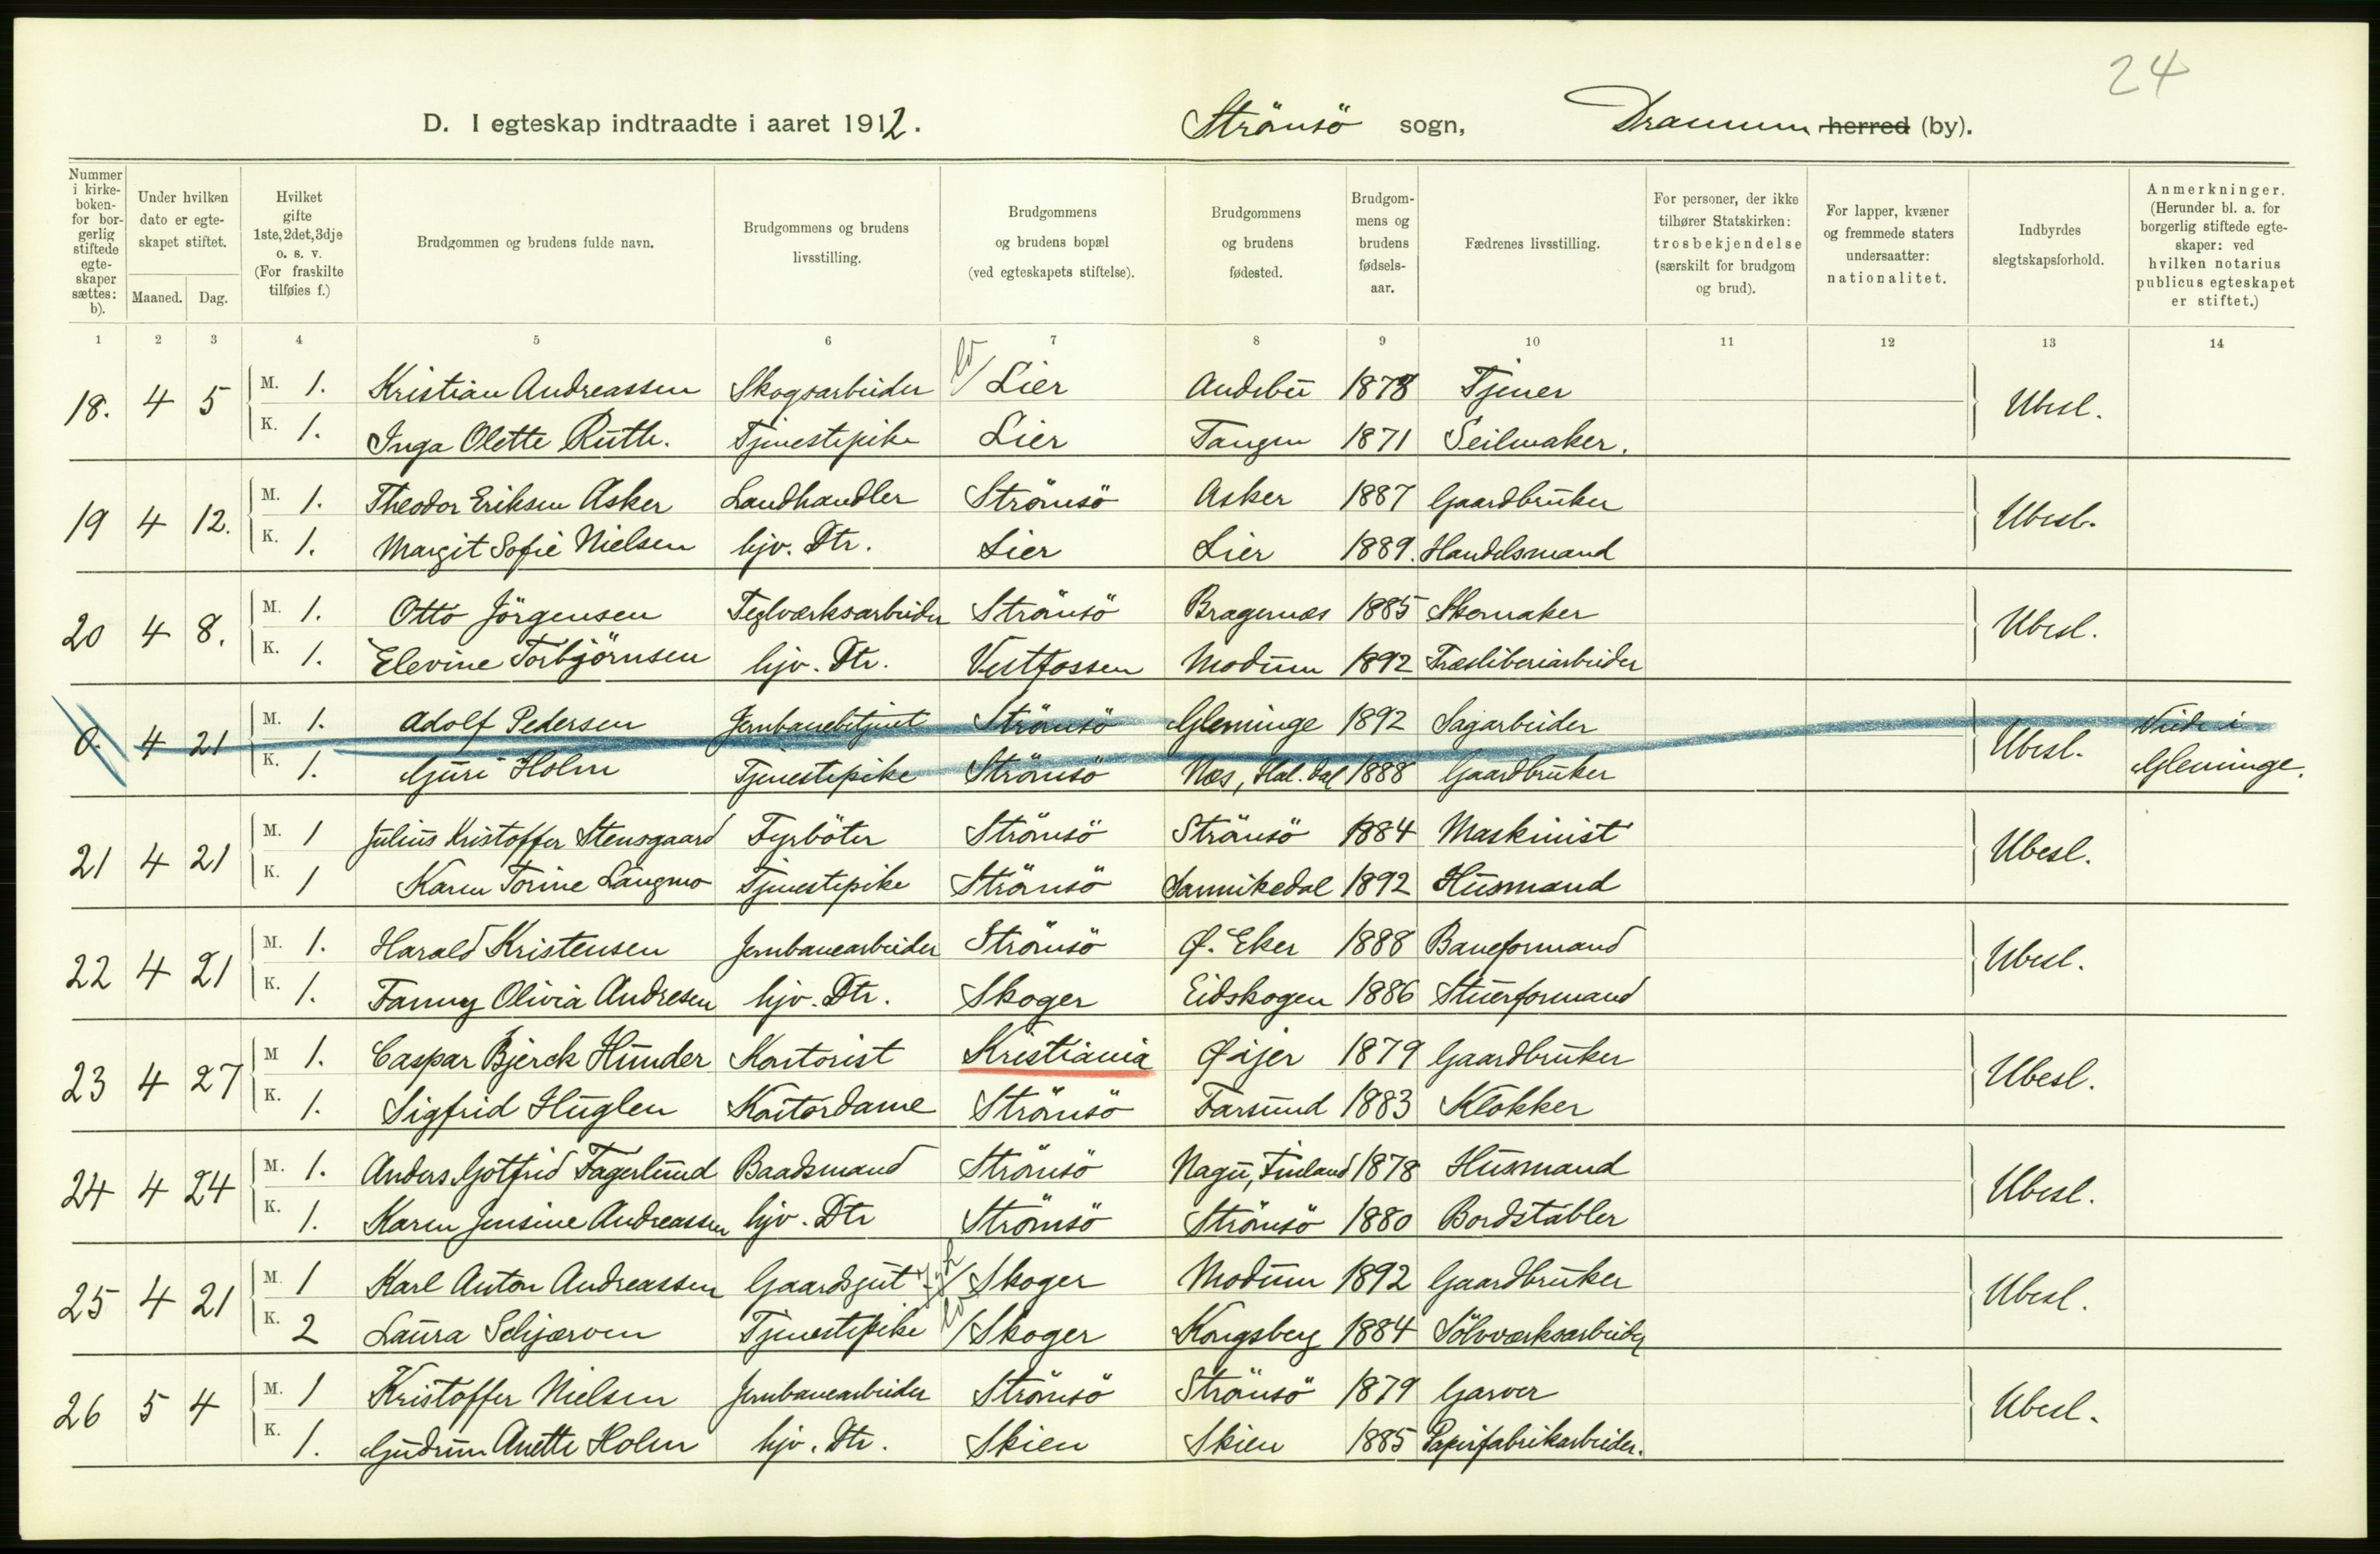 24
D. I egteskap indtraadte i aaret 1912. Strömsö sogn, Drammen herred (by).
Nummer i kirkeboken- for borgerlig stiftede egteskaper sættes: b).
Under hvilken dato er egteskapet stiftet.
Maaned. Dag.
Hvilket gifte 1ste, 2det, 3dje o. s. v. (For fraskilte tilføies f.)
Brudgommen og brudens fulde navn.
Brudgommens og brudens livsstilling.
Brudgommens og brudens bopæl (ved egteskapets stiftelse).
Brudgommens og brudens fødested.
Brudgommens og brudens fødselsaar.
Fædrenes livsstilling.
For personer, der ikke tilhører Statskirken: trosbekjendelse (særskilt for brudgom og brud).
For lapper, kvæner og fremmede staters undersaatter: nationalitet.
Indbyrdes slegtskapsforhold.
Anmerkninger. (Herunder bl. a. for borgerlig stiftede egteskaper: ved hvilken notarius publicus egteskapet er stiftet.)
1 2 3 4 5 6 7 8 9 10 11 12 13 14
18. 4 5 M. 1. Kristian Andreassen Skogsarbeider Lier Andebu 1878 Tjener Ubesl.
K. 1. Inga Olette Ruth. Tjenestepike Lier Tangen 1871 Seilmaker.
19 4 12. M. 1. Theodor Eriksen Asker Landhandler Strömsö Asker 1887 Gaardbruker Ubesl.
K. 1. Margit Sofie Nielsen hjv. Dtr. Lier Lier 1889. Handelsmand
20 4 8. M. 1. Otto Jörgensen Teglværksarbeider Strömsö Bragernæs 1885 Skomaker Ubesl.
K. 1. Elevine Torbjörnsen hjv. Dtr. Vestfossen Modum 1892 Træsliberiarbeider
0. 4 21 M. 1. Adolf Pedersen Jernbanebetjent Strömsö Glemminge 1892 Sagarbeider Ubesl. Viede i
K. 1. Guri Holm Tjenestepike Strömsö Næs, Hal.dal 1888 Gaardbruker Glemminge.
21 4 21 M. 1 Julius Kristoffer Stensgaard Fyrböter Strömsö Strömsö 1884 Maskinist Ubesl.
K. 1 Karen Torine Langmo Tjenestepike Strömsö Sannikedal 1892 Husmand
22 4 21 M. 1. Harald Kristensen Jernbanearbeider Strömsö Ø. Eker 1888 Baneformand Ubesl.
K. 1. Fanny Olivia Andresen hjv. Dtr. Skoger Eidskogen 1886 Stuerformand
23 4 27 M 1. Caspar Bjerck Hunder Kontorist Kristiania Øijer 1879 Gaardbruker Ubesl.
K. 1. Sigfrid Huglen Kontordame Strömsö Farsund 1883 Klokker
24 4 24 M. 1. Anders Gotfrid Fagerlund Baadsmand Strömsö Nagu, Finland 1878 Husmand Ubesl.
K. 1. Karen Jensine Andreassen hjv. Dtr Strömsö Strömsö 1880 Bordstabler
25 4 21 M. 1 Karl Anton Andreassen Gaardsgut Skoger Modum 1892 Gaardbruker Ubesl.
K. 2 Laura Schjærven Tjenestepike Skoger Kongsberg 1884 Sölvværksarbeider
26 5 4 M. 1 Kristoffer Nielsen Jernbanearbeider Strömsö Strömsö 1879 Garver Ubesl.
K. 1. Gudrun Anette Holm hjv. Dtr. Skien Skien 1885 Papirfabrikarbeider.